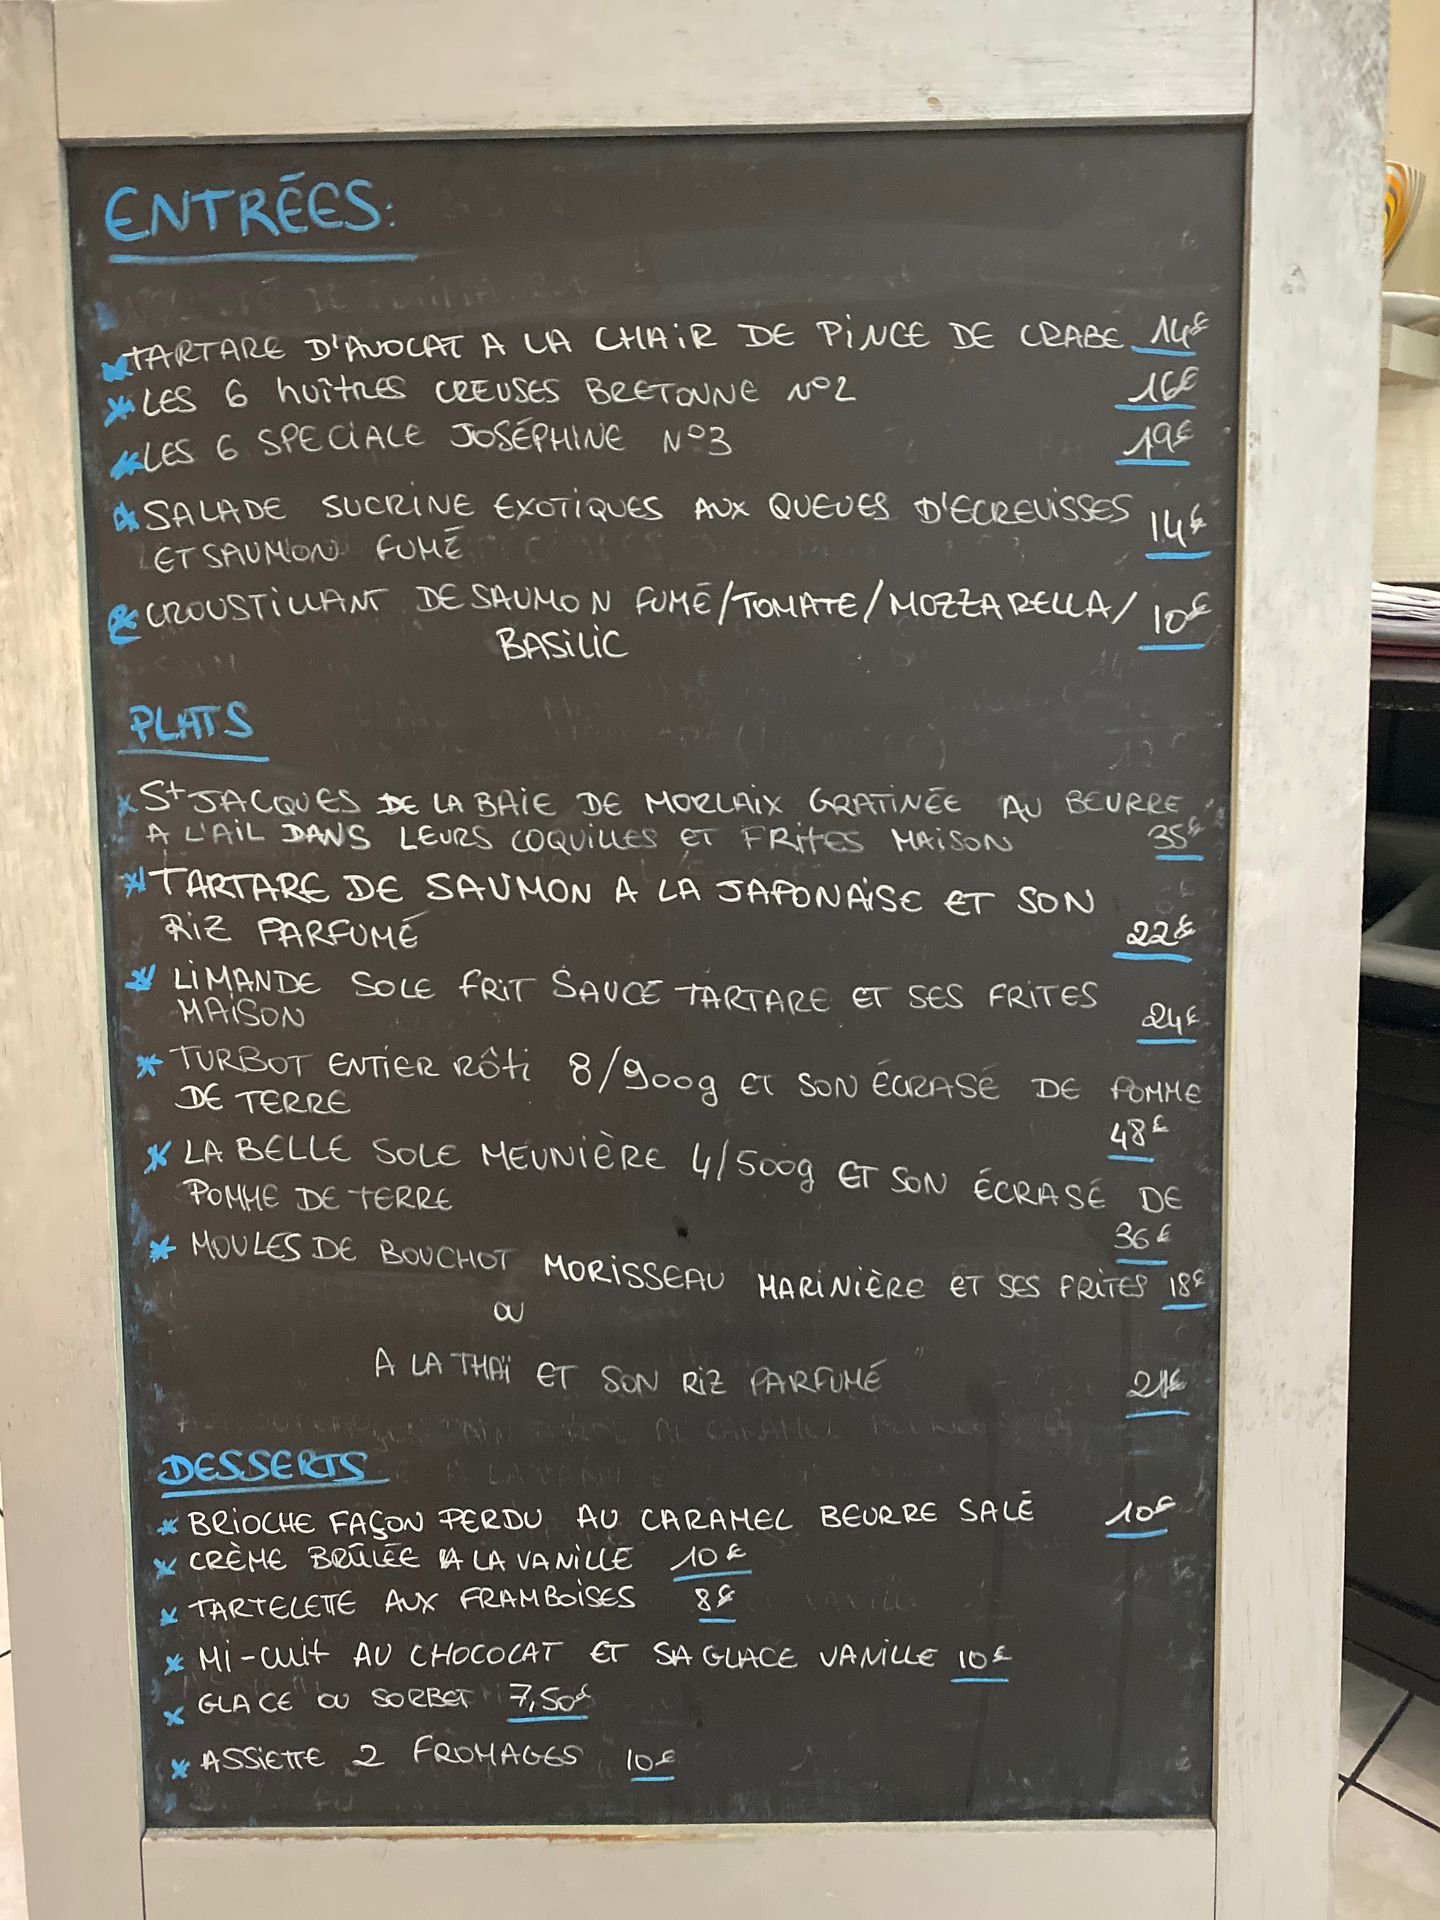 ENTRÉES:
TARTARE D'AVOCAT A LA CHAIR DE PINCE DE CRABE 14€
LES 6 HUÎTRES CREUSES BRETONNE N°2 16€
LES 6 SPECIALE JOSÉPHINE N°3 19€
SALADE SUCRINE EXOTIQUES AUX QUEUES D'ECREVISSES
ET SAUMON FUMÉ 14€
CROUSTILLANT DE SAUMON FUMÉ/TOMATE/MOZZARELLA/
BASILIC 10€
PLATS
St JACQUES DE LA BAIE DE MORLAIX GRATINÉE AU BEURRE
A L'AIL DANS LEURS COQUILLES ET FRITES MAISON 35€
TARTARE DE SAUMON A LA JAPONAISE ET SON
RIZ PARFUMÉ 22€
LIMANDE SOLE FRIT SAUCE TARTARE ET SES FRITES
MAISON 24€
TURBOT ENTIER RÔTI 8/900g ET SON ÉCRASÉ DE POMME
DE TERRE 48€
LA BELLE SOLE MEUNIÈRE 4/500g ET SON ÉCRASÉ DE
POMME DE TERRE 36€
MOULES DE BOUCHOT MORISSEAU MARINIÈRE ET SES FRITES 18€
OU
A LA THAÏ ET SON RIZ PARFUMÉ 21€
DESSERTS
BRIOCHE FAÇON PERDU AU CARAMEL BEURRE SALÉ 10€
CRÈME BRÛLÉE A LA VANILLE 10€
TARTELETTE AUX FRAMBOISES 8€
MI-CUIT AU CHOCOLAT ET SA GLACE VANILLE 10€
GLACE OU SORBET 7,50€
ASSIETTE 2 FROMAGES 10€